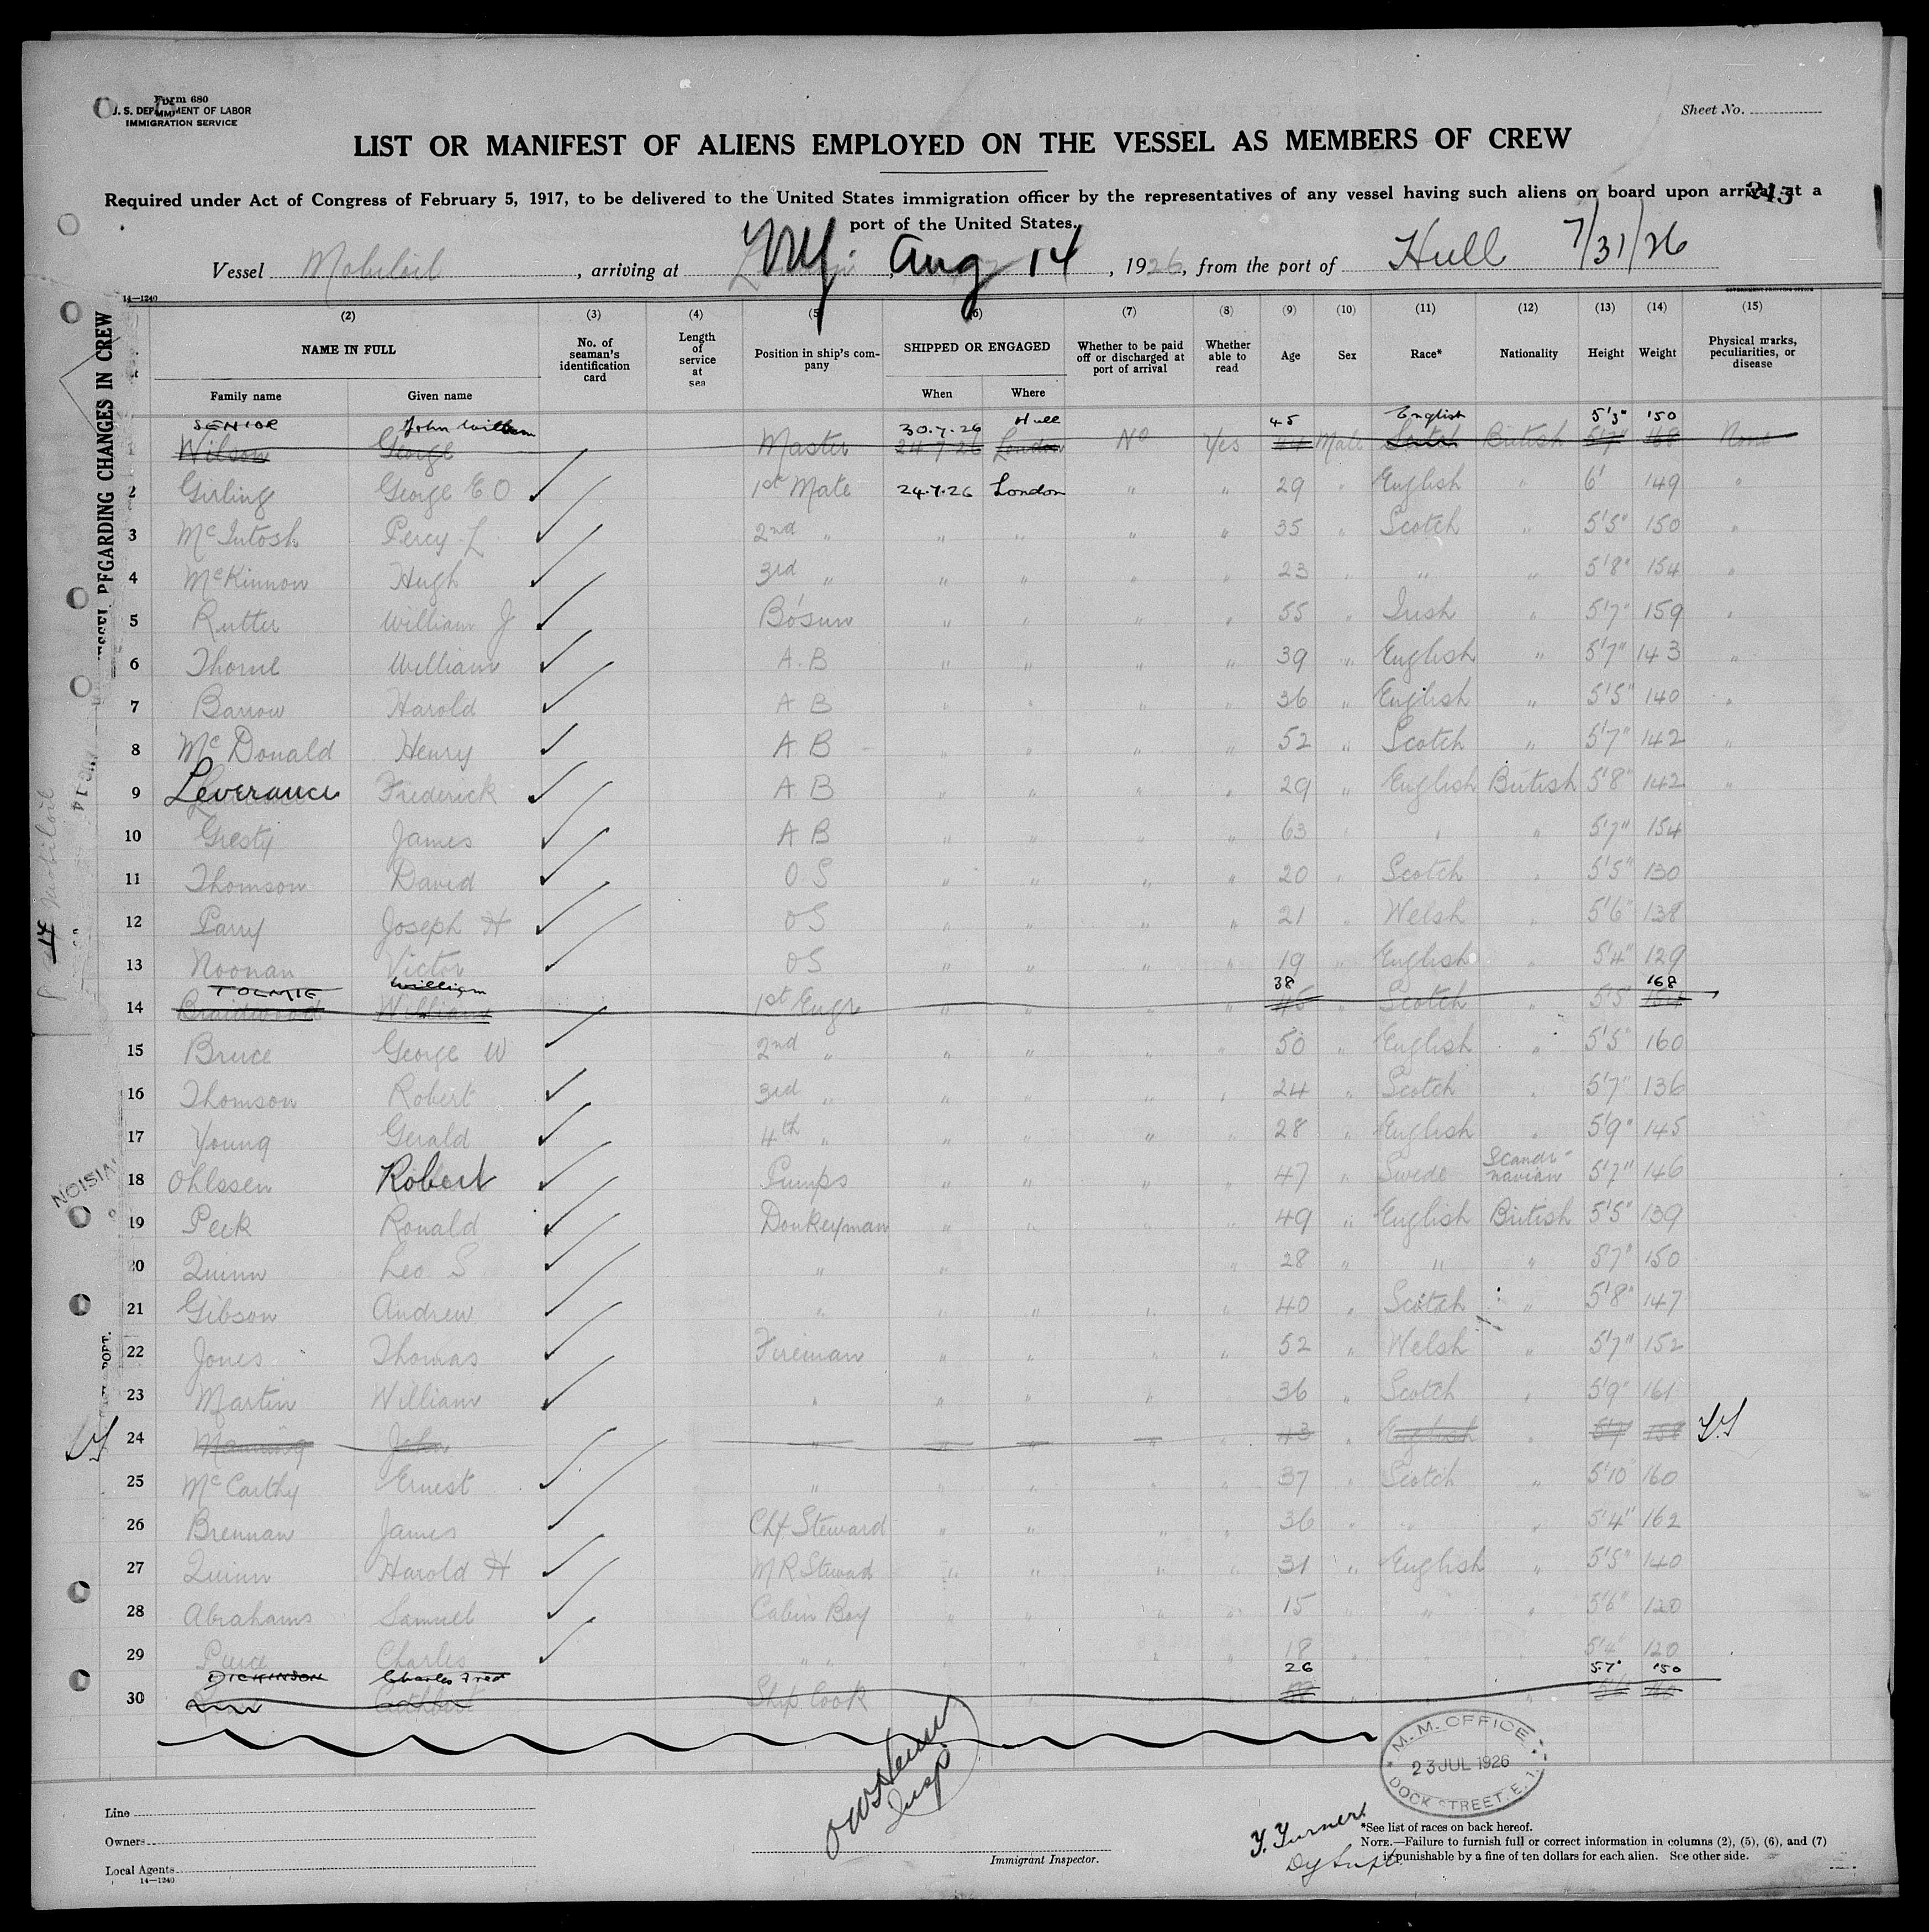 Form 680
U. S. DEPARTMENT OF LABOR
IMMIGRATION SERVICE
Sheet No.
LIST OR MANIFEST OF ALIENS EMPLOYED ON THE VESSEL AS MEMBERS OF CREW
Required under Act of Congress of February 5, 1917, to be delivered to the United States immigration officer by the representatives of any vessel having such aliens on board upon arrival at a
port of the United States.
245
Vessel Mobiloil, arriving at NY, Aug 14, 1926, from the port of Hull 7/31/26
14—1240
(2) (3) (4) (5) (6) (7) (8) (9) (10) (11) (12) (13) (14) (15)
NAME IN FULL No. of seaman's identification card Length of service at sea Position in ship's company SHIPPED OR ENGAGED Whether to be paid off or discharged at port of arrival Whether able to read Age Sex Race* Nationality Height Weight Physical marks, peculiarities, or disease
Family name Given name When Where
SENIOR John William 30.7.26 Hull 45 English 5'3" 150
1 Wilson George Master 24.7.26 London No Yes 44 Male Scotch British 5'7" 168 None
2 Girling George E O ✓ 1st Mate 24.7.26 London " " 29 " English " 6' 149 "
3 McIntosh Percy L ✓ 2nd " " " " " 35 " Scotch " 5'5" 150 "
4 McKinnon Hugh ✓ 3rd " " " " " 23 " " " 5'8" 154 "
5 Rutter William J ✓ Bo'sun " " " " 55 " Irish " 5'7" 159 "
6 Thorne William ✓ A.B " " " " 39 " English " 5'7" 143 "
7 Barrow Harold ✓ A B " " " " 36 " English " 5'5" 140 "
8 McDonald Henry ✓ A B " " " " 52 " Scotch " 5'7" 142 "
9 Leverance Frederick ✓ A B " " " " 29 " English British 5'8" 142 "
10 Gresty James ✓ A B " " " " 63 " " " 5'7" 154
11 Thomson David ✓ O S " " " " 20 " Scotch " 5'5" 130
12 Parry Joseph H ✓ OS " " " " 21 " Welsh " 5'6" 138
13 Noonan Victor ✓ OS " " " " 19 " English " 5'4" 129
TOLMIE William 38 168
14 Braidwood William 1st Engr " " " " 45 " Scotch " 5'5"
15 Bruce George W ✓ 2nd " " " " " 50 " English " 5'5" 160
16 Thomson Robert ✓ 3rd " " " " " 24 " Scotch " 5'7" 136
17 Young Gerald ✓ 4th " " " " " 28 " English " 5'9" 145
18 Ohlssen Robert ✓ Pumps " " " " 47 " Swede Scandinavian 5'7" 146
19 Peek Ronald ✓ Donkeyman " " " " 49 " English British 5'5" 139
20 Quinn Leo S ✓ " " " 28 " " " 5'7" 150
21 Gibson Andrew ✓ " " " " " 40 " Scotch " 5'8" 147
22 Jones Thomas ✓ Fireman " " " " 52 " Welsh " 5'7" 152
23 Martin William ✓ " " " " 36 " Scotch " 5'9" 161
24 Manning John " " " " " 43 " English "
25 McCarthy Ernest ✓ " " " " " 37 " Scotch " 5'10" 160
26 Brennan James ✓ Chf Steward " " " " 36 " " " 5'4" 162
27 Quinn Harold H ✓ M R Steward " " " " 31 " English " 5'5" 140
28 Abrahams Samuel ✓ Cabin Boy " " " " 15 " " " 5'6" 120
29 Charles ✓ " " " " " " 18 " " " 5'4" 120
DICKINSON Charles Fred 26 5'7" 150
30 Cuthbert Ship Cook
M. M. OFFICE
23 JUL 1926
DOCK STREET, E. 1.
Line
Owners
Local Agents
14—1240
Insp
Immigrant Inspector.
Turner
Dy Supt.
*See list of races on back hereof.
NOTE.—Failure to furnish full or correct information in columns (2), (5), (6), and (7)
is punishable by a fine of ten dollars for each alien. See other side.